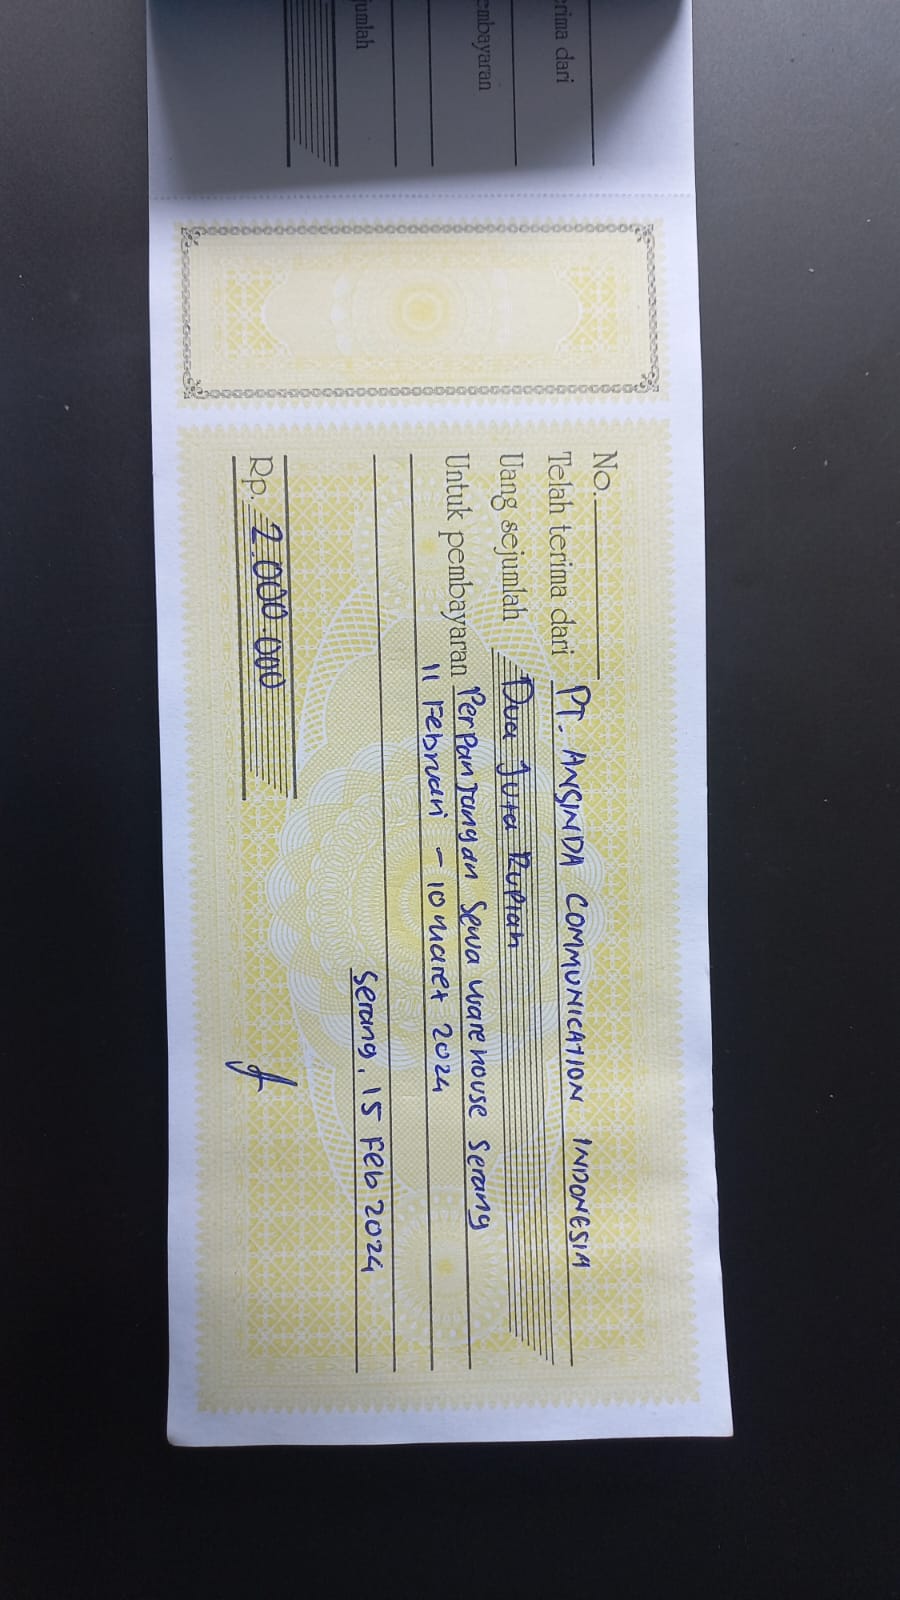 erima dari
embayaran
jumlah
No.
Telah terima dari PT. ANGINDA COMMUNICATION INDONESIA
Uang sejumlah Dua Juta Rupiah
Untuk pembayaran Perpanjangan Sewa warehouse Serang
11 Februari - 10 Maret 2024
Serang, 15 Feb 2024
Rp. 2.000.000